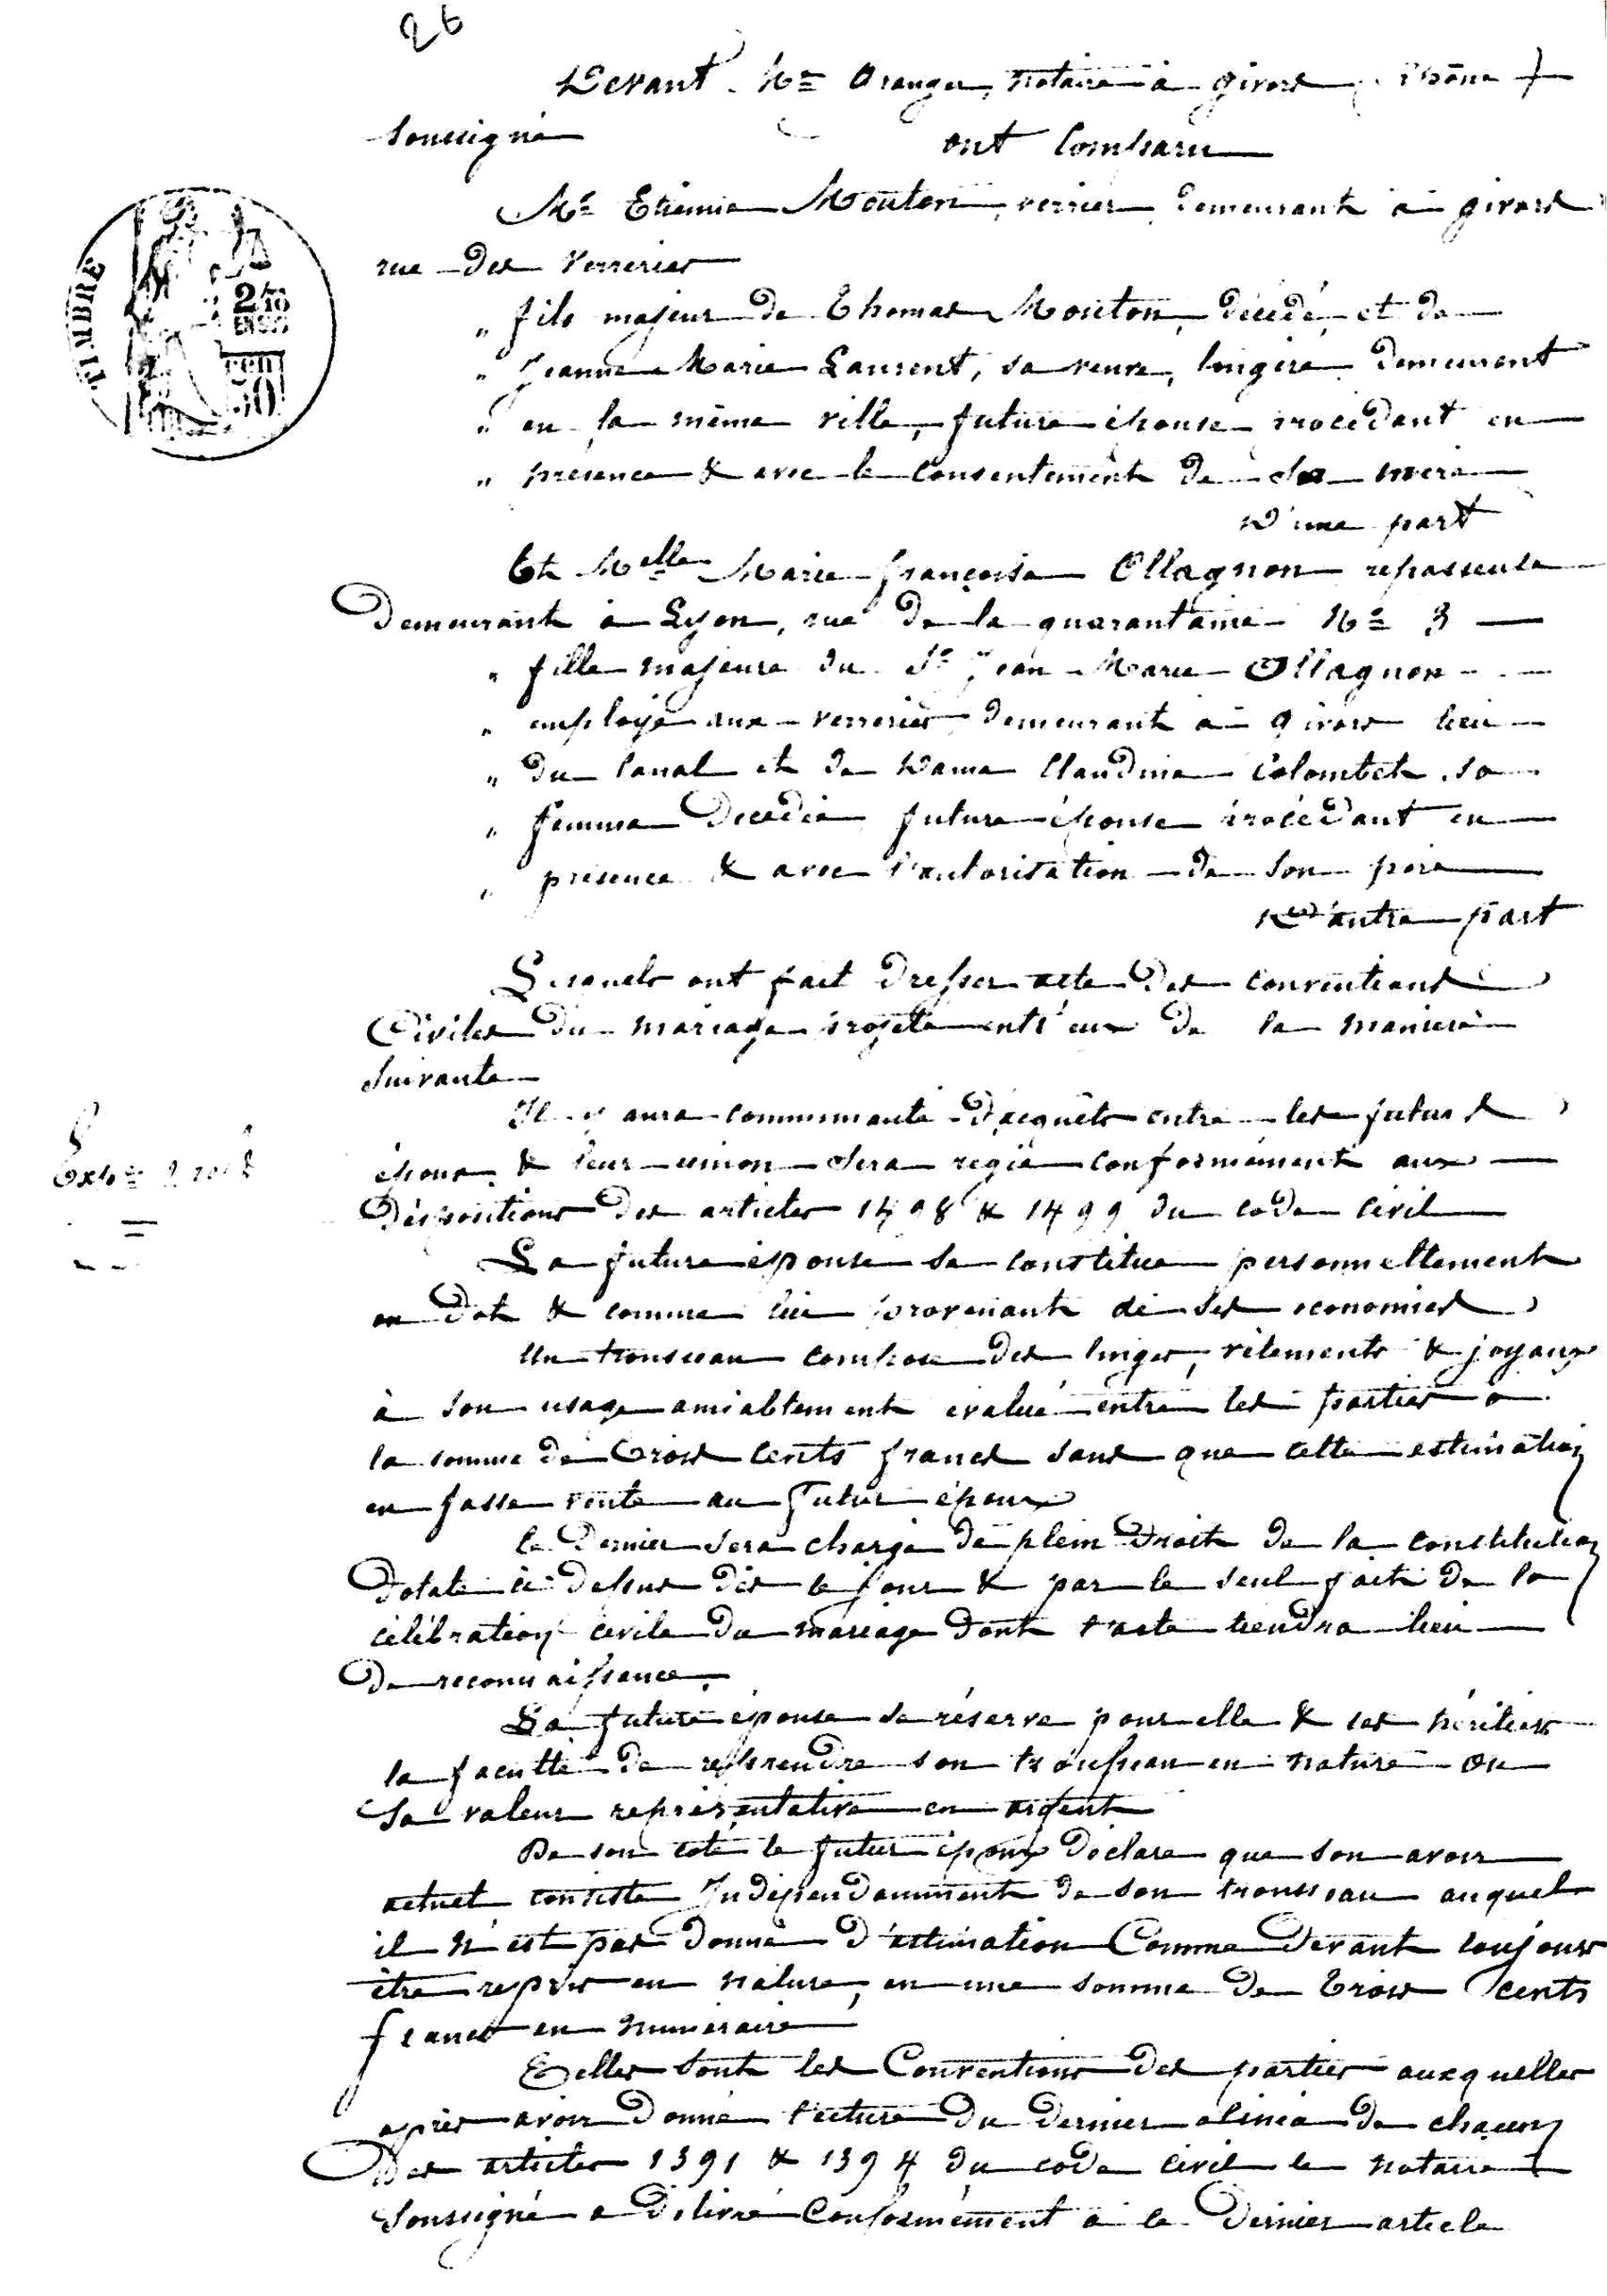 26
Devant Me Oranger, notaire à givors, Rhône
soussigné
ont comparu
Mr Etienne Mouton, verrier demeurant à givors
rue des Verreries
" fils majeur de Thomas Mouton, décédé, et de
" Jeanne Marie Laurent, sa veuve, lingère demeurant
" en la même ville, future épouse procédant en
" présence & avec le consentement de sa mère
D'une part
Et Melle Marie françoise Ollagnon repasseuse
Demeurant à Lyon, rue de la quarantaine No 3
" fille majeure du Sr Jean Marie Ollagnon
" employé aux verreries demeurant à givors lieu
" du Canal et de Dame Claudine Colombet sa
" femme Décédée future épouse procédant en
" présence & avec l'autorisation de son père
D'autre part
Lesquels ont fait dresser acte des conventions
Civiles du mariage projeté entr'eux de la manière
suivante
Il y aura communauté d'acquêts entre les futurs
époux & leur union sera régie conformément aux
Dispositions des articles 1498 & 1499 du code civil
La future épouse se constitue personnellement
en dot & comme lui provenant de ses économies
Un trousseau composé des linges, vêtements & joyaux
à son usage amiablement évalué entre les parties à
la somme de Trois Cents francs sans que cette estimation
en fasse vente au futur époux
Ce Dernier sera chargé de plein Droit de la constitution
Dotale ci dessus dès le jour & par le seul fait de la
célébration civile du mariage dont l'acte tiendra lieu
De reconnaissance.
La future épouse se réserve pour elle & ses héritiers
la faculté de reprendre son trousseau en nature ou
sa valeur représentative en argent
De son coté le futur époux déclare que son avoir
actuel consiste Indépendamment de son trousseau auquel
il n'est pas donné d'estimation Comme devant toujours
être repris en nature, en une somme de Trois Cents
francs en numéraire
Telles sont les Conventions des parties auxquelles
après avoir donné lecture du dernier alinéa de chacun
Des articles 1391 & 1394 du code civil le notaire
soussigné a délivré Conformément à ce dernier article
TIMBRE